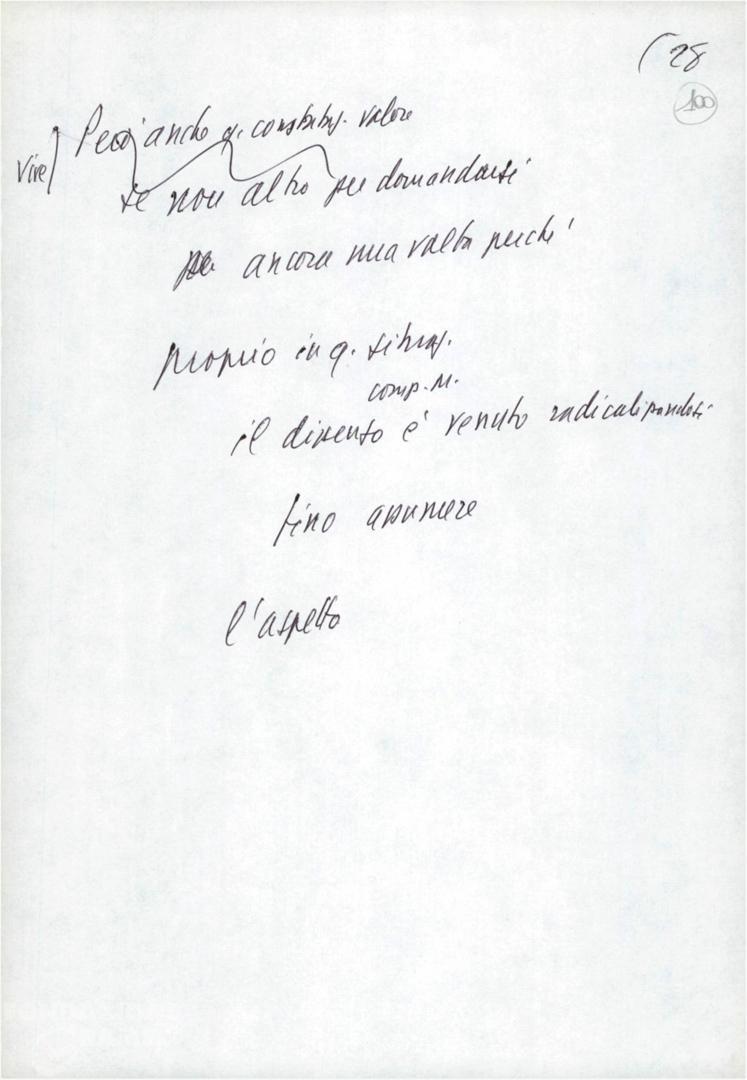 ( 28
100
Vive
Però anche q. constataz. valore
se non altro per domandarsi
ancora una volta perché
proprio in q. situaz.
comp. M.
il dissenso è venuto radicalizzandosi
fino assumere
l'aspetto